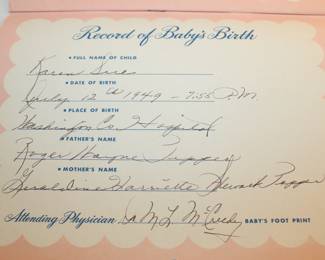 Record of Baby's Birth
• FULL NAME OF CHILD
Karen Sue
• DATE OF BIRTH
July 12th 1949 - 7:55 P.M.
• PLACE OF BIRTH
Washington Co. Hospital
• FATHER'S NAME
Roger Wayne
• MOTHER'S NAME
Geraldine Harriette
Attending Physician
BABY'S FOOT PRINT